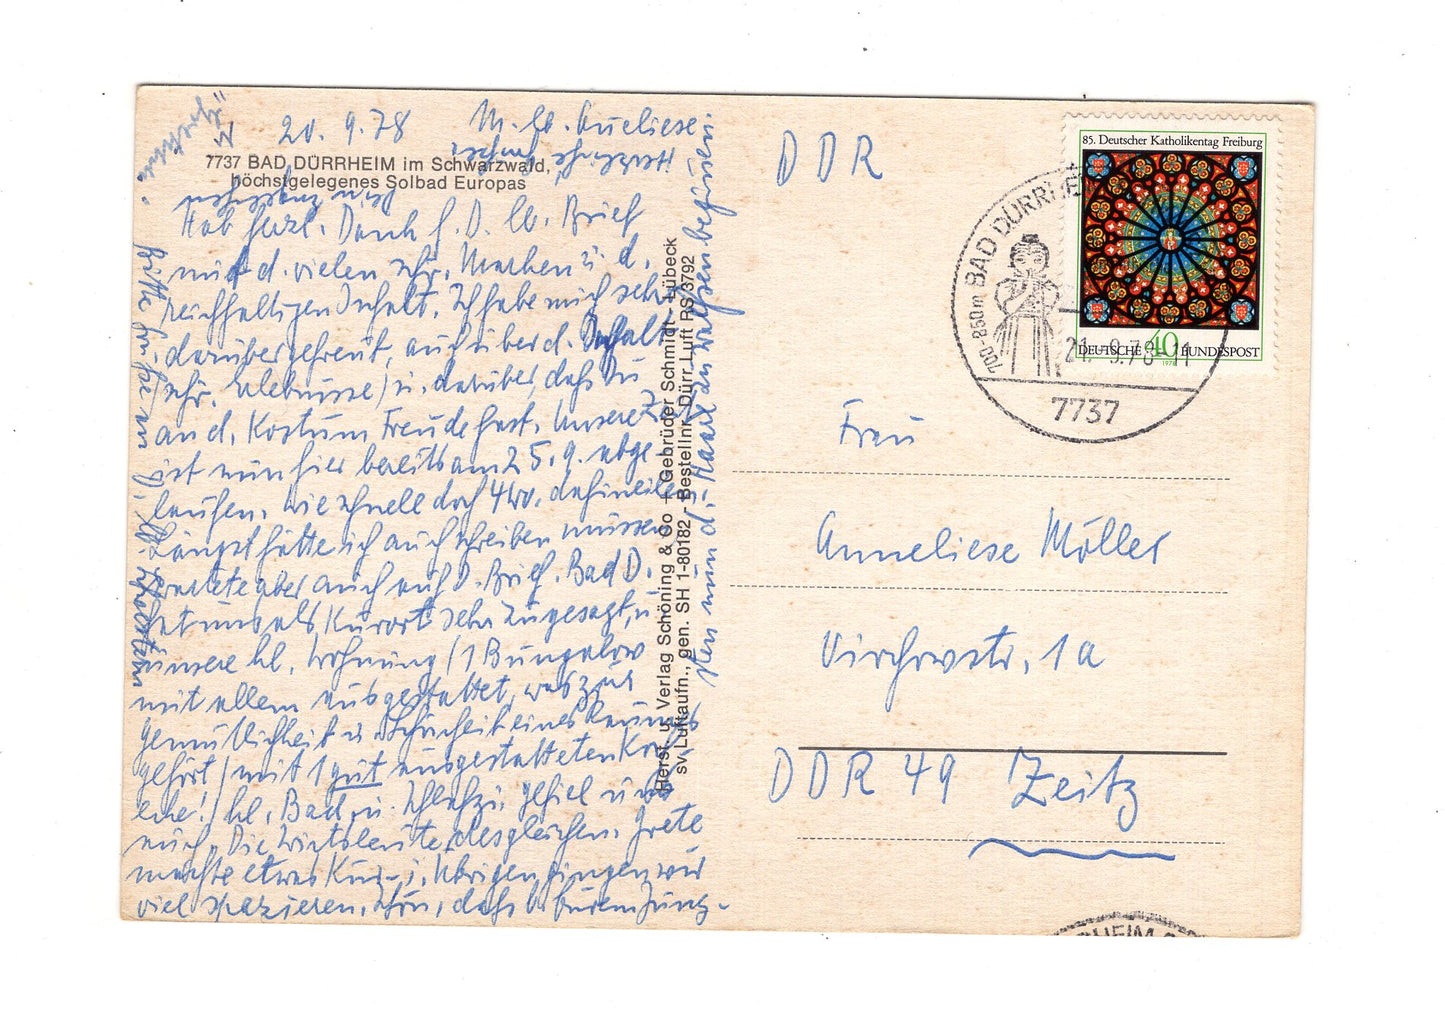 20. 9. 78 M. lb. Anneliese!
7737 BAD DÜRRHEIM im Schwarzwald,
höchstgelegenes Solbad Europas
Hab herzl. Dank f. D. lb. Brief
mit d. vielen schr. Marken u. d.
reichhaltigen Inhalt. Ich habe mich sehr
darüber gefreut, auch über d. Inhalt
(schr. Erlebnisse) u. darüber, daß Du
an d. Kostüm Freude hast. Unsere Zeit
ist nun hier bereits am 25. 9. abge-
laufen. Wie schnell doch 4 Wo. dahineilen
Längst hätte ich auch schreiben müssen
wartete aber auch auf D. Brief. Bad D.
hat uns als Kurort sehr zugesagt, u.
unsere kl. Wohnung (1 Bungalow
mit allem ausgestattet, was zur
Gemütlichkeit u. Schönheit eines Raumes
gehört) mit 1 gut ausgestatteten Koch-
ecke!) kl. Bad u. Schlafzi. gefiel uns
auch. Die Wirtsleute desgleichen. Grete
machte etwas Kur - i. Übrigen gingen wir
viel spazieren. Schön, daß b. Eurem Jüng-
sten nun d. Haare zu wachsen beginnen.
Herst. u. Verlag Schöning & Co + Gebrüder Schmidt - Lübeck
sv-Luftaufn., gen. SH 1-80182 - Bestellnr. Dürr Luft RS/3792
DDR
85. Deutscher Katholikentag Freiburg
DEUTSCHE 40 BUNDESPOST
1978
700-850m BAD DÜRRHEIM
21.-9.78-11
7737
Frau
Anneliese Möller
Virchowstr. 1a
DDR 49 Zeitz